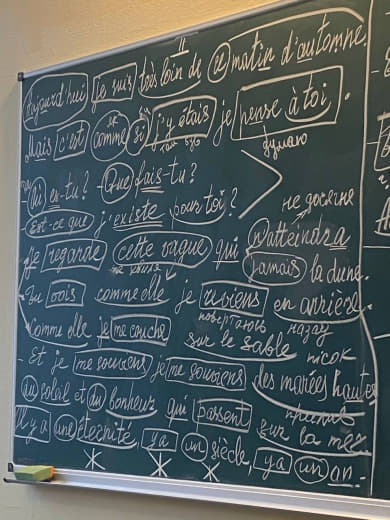 Aujourd'hui je suis très loin de ce matin d'automne.
Mais c'est comme si j'y étais je pense à toi.
думаю
- Où es-tu? - Que fais-tu?
не досягне
Est-ce que j'existe pour toi?
Je regarde cette vague qui n'atteindra
jamais la dune.
Tu vois comme elle je reviens en arrière.
повертаюсь назад
Comme elle je me couche sur le sable
пісок
- Et je me souviens je me souviens des marées hautes
du soleil et du bonheur qui passent sur la mer
Il y a une éternité, ya un siècle, ya un an.